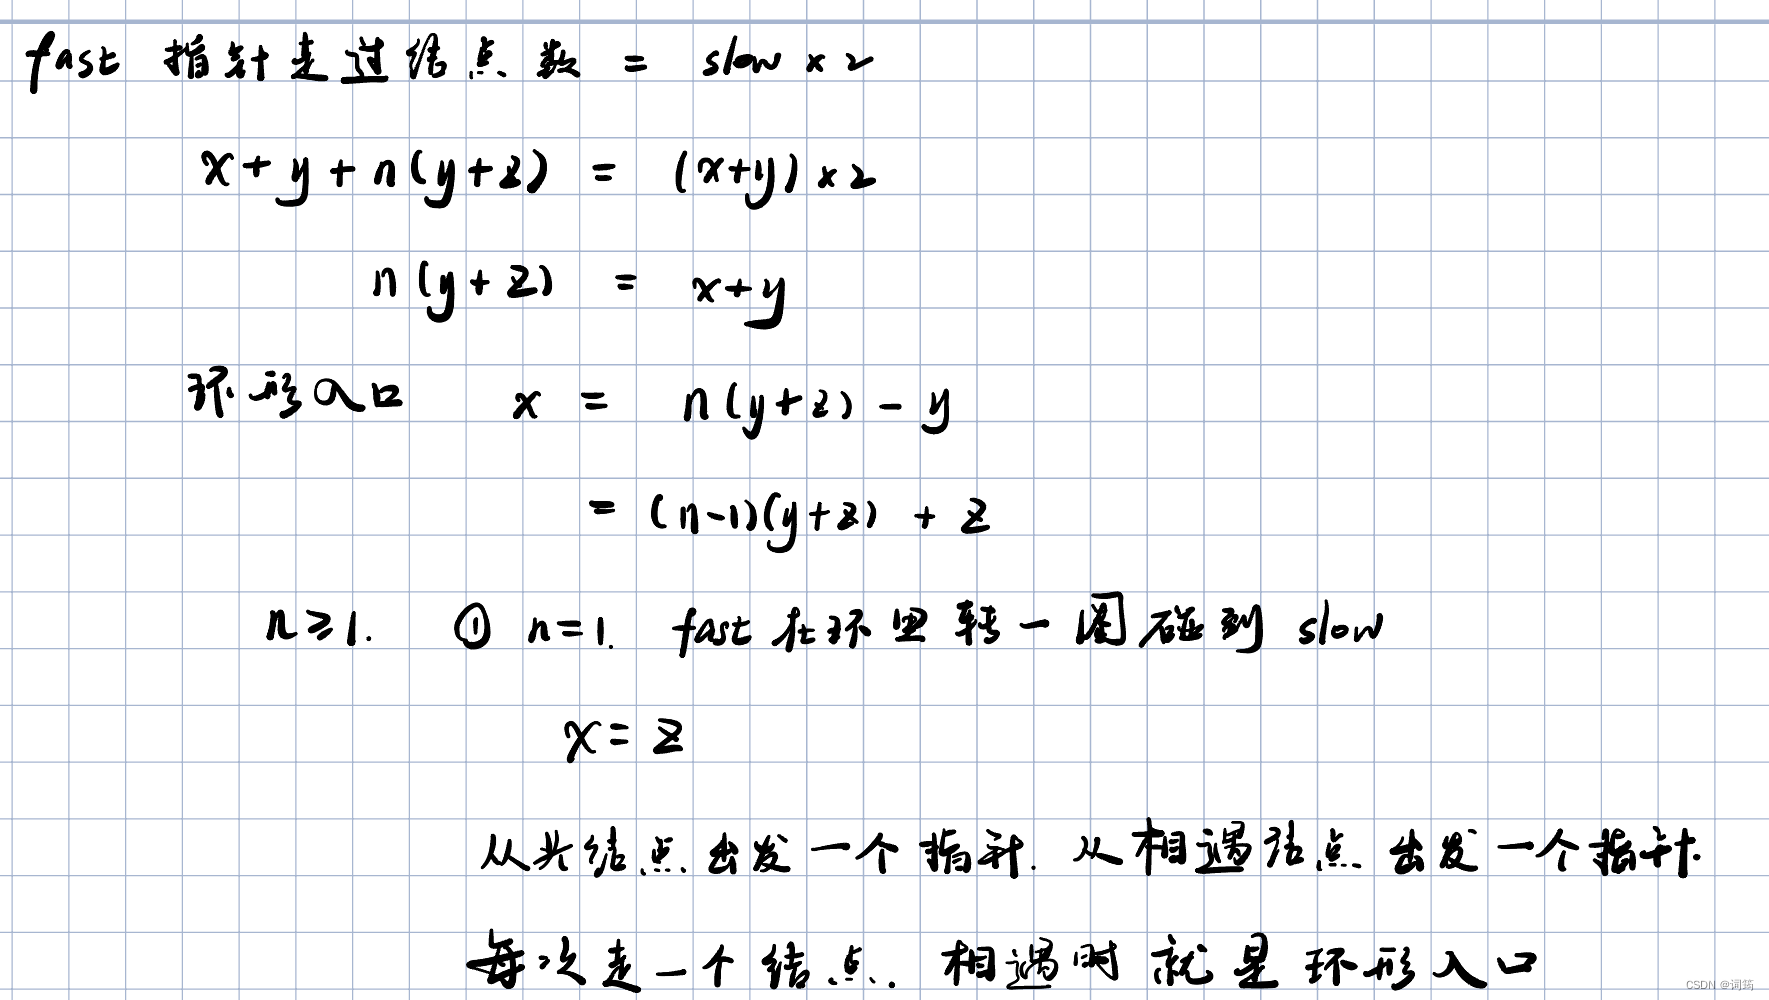 fast 指针走过结点数 = slow × 2
x + y + n(y+z) = (x+y) × 2
n(y+z) = x+y
环形入口 x = n(y+z) - y
= (n-1)(y+z) + z
n≥1. ① n=1. fast 在环里转一圈碰到 slow
x = z
从头结点出发一个指针. 从相遇结点出发一个指针.
每次走一个结点. 相遇时就是环形入口
CSDN @词筠